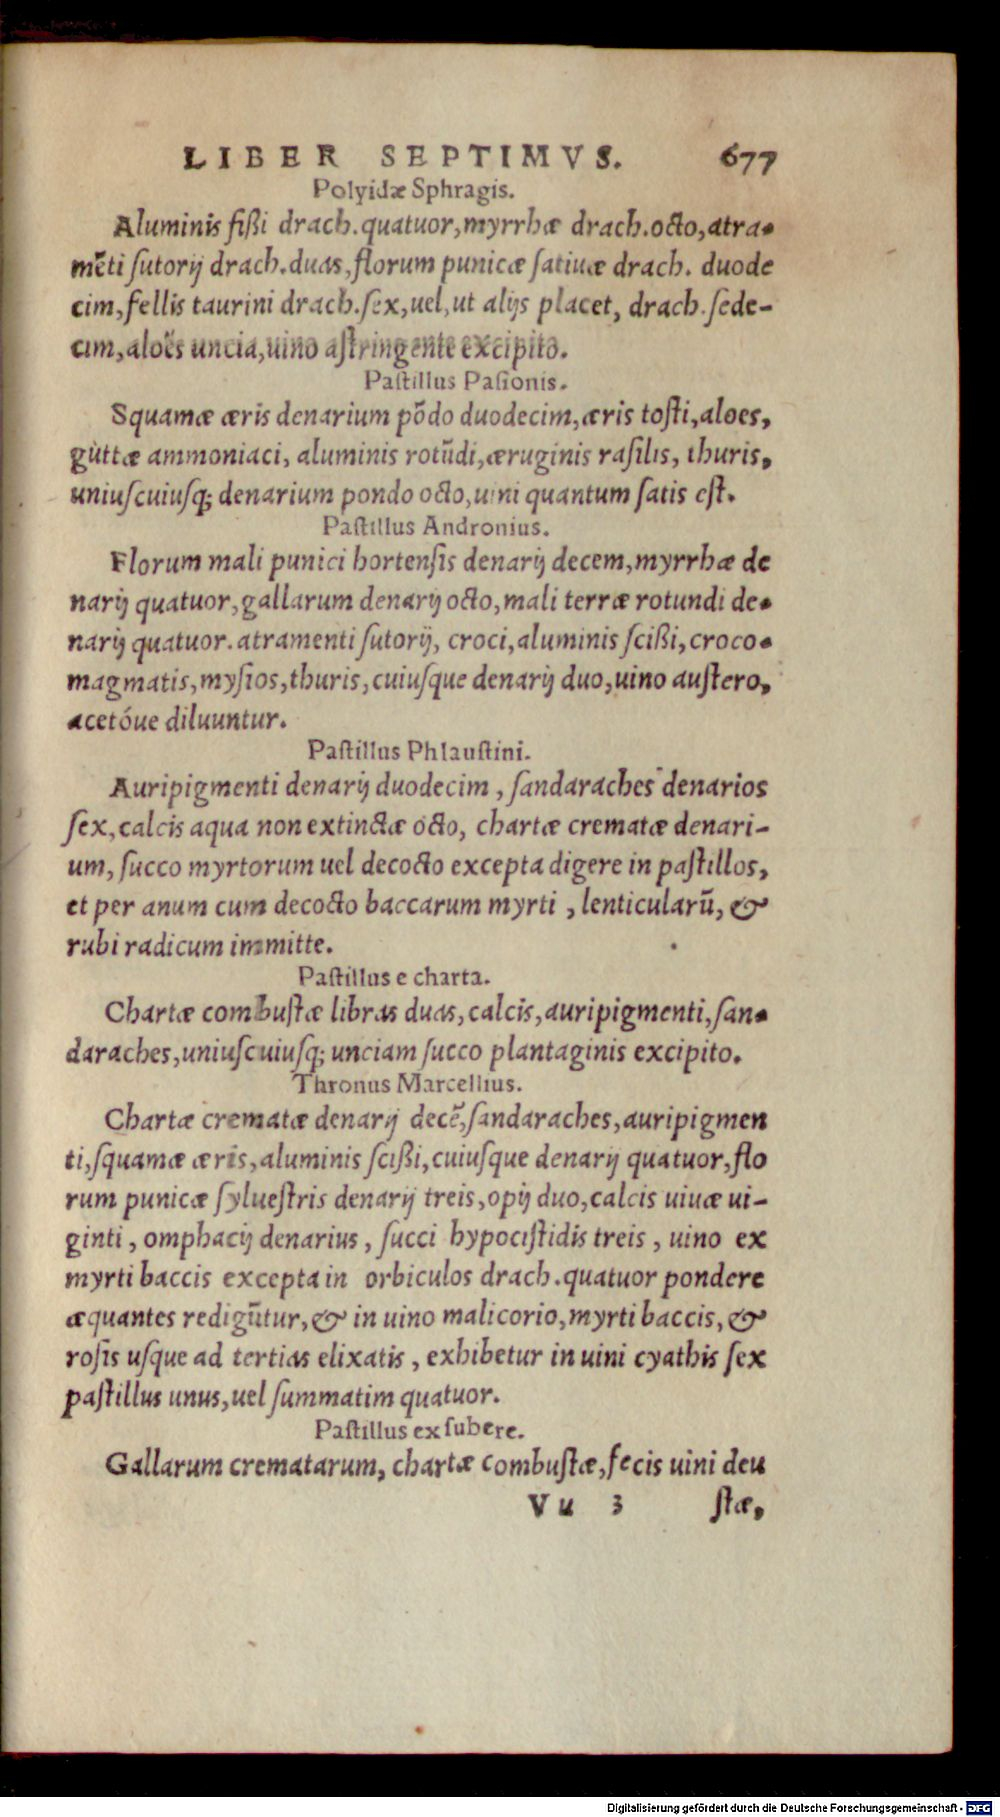 LIBER SEPTIMVS. 677
Polyidæ Sphragis.
Aluminis fißi drach.quatuor,myrrhæ drach.octo,atra-
mẽti ſutorij drach.duas,florum punicæ ſatiuæ drach. duode
cim,fellis taurini drach.ſex,uel,ut alijs placet, drach.ſede-
cim,aloës uncia,uino aſtringente excipito.
Paſtillus Paſionis.
Squamæ æris denarium põdo duodecim,æris toſti,aloes,
guttæ ammoniaci, aluminis rotũdi,æruginis raſilis, thuris,
uniuſcuiuſq; denarium pondo octo,uini quantum ſatis eſt.
Paſtillus Andronius.
Florum mali punici hortenſis denarij decem,myrrhæ de
narij quatuor,gallarum denarij octo,mali terræ rotundi de-
narij quatuor.atramenti ſutorij, croci,aluminis ſcißi,croco-
magmatis,myſios,thuris,cuiuſque denarij duo,uino auſtero,
acetóue diluuntur.
Paſtillus Phlauſtini.
Auripigmenti denarij duodecim , ſandaraches denarios
ſex,calcis aqua non extinctæ octo, chartæ crematæ denari-
um, ſucco myrtorum uel decocto excepta digere in paſtillos,
et per anum cum decocto baccarum myrti , lenticularũ, &
rubi radicum immitte.
Paſtillus e charta.
Chartæ combuſtæ libras duas,calcis,auripigmenti,ſan-
daraches,uniuſcuiuſq; unciam ſucco plantaginis excipito.
Thronus Marcellius.
Chartæ crematæ denarij decẽ,ſandaraches,auripigmen
ti,ſquamæ æris,aluminis ſcißi,cuiuſque denarij quatuor,flo
rum punicæ ſylueſtris denarij treis,opij duo,calcis uiuæ ui-
ginti , omphacij denarius , ſucci hypociſtidis treis , uino ex
myrti baccis excepta in orbiculos drach.quatuor pondere
æquantes redigũtur,& in uino malicorio,myrti baccis,&
roſis uſque ad tertias elixatis , exhibetur in uini cyathis ſex
paſtillus unus,uel ſummatim quatuor.
Paſtillus ex ſubere.
Gallarum crematarum, chartæ combuſtæ,fecis uini deu
V u 3 ſtæ,
Digitalisierung gefördert durch die Deutsche Forschungsgemeinschaft - DFG